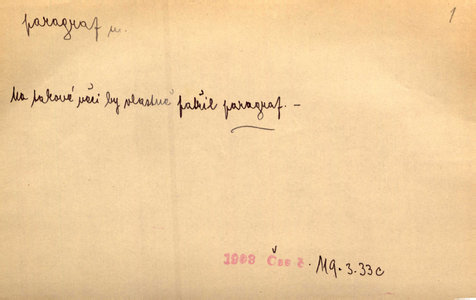 paragraf m.
1
Na takové věci by vlastně patřil paragraf. –
1903 Čas č. 119. 3.33c